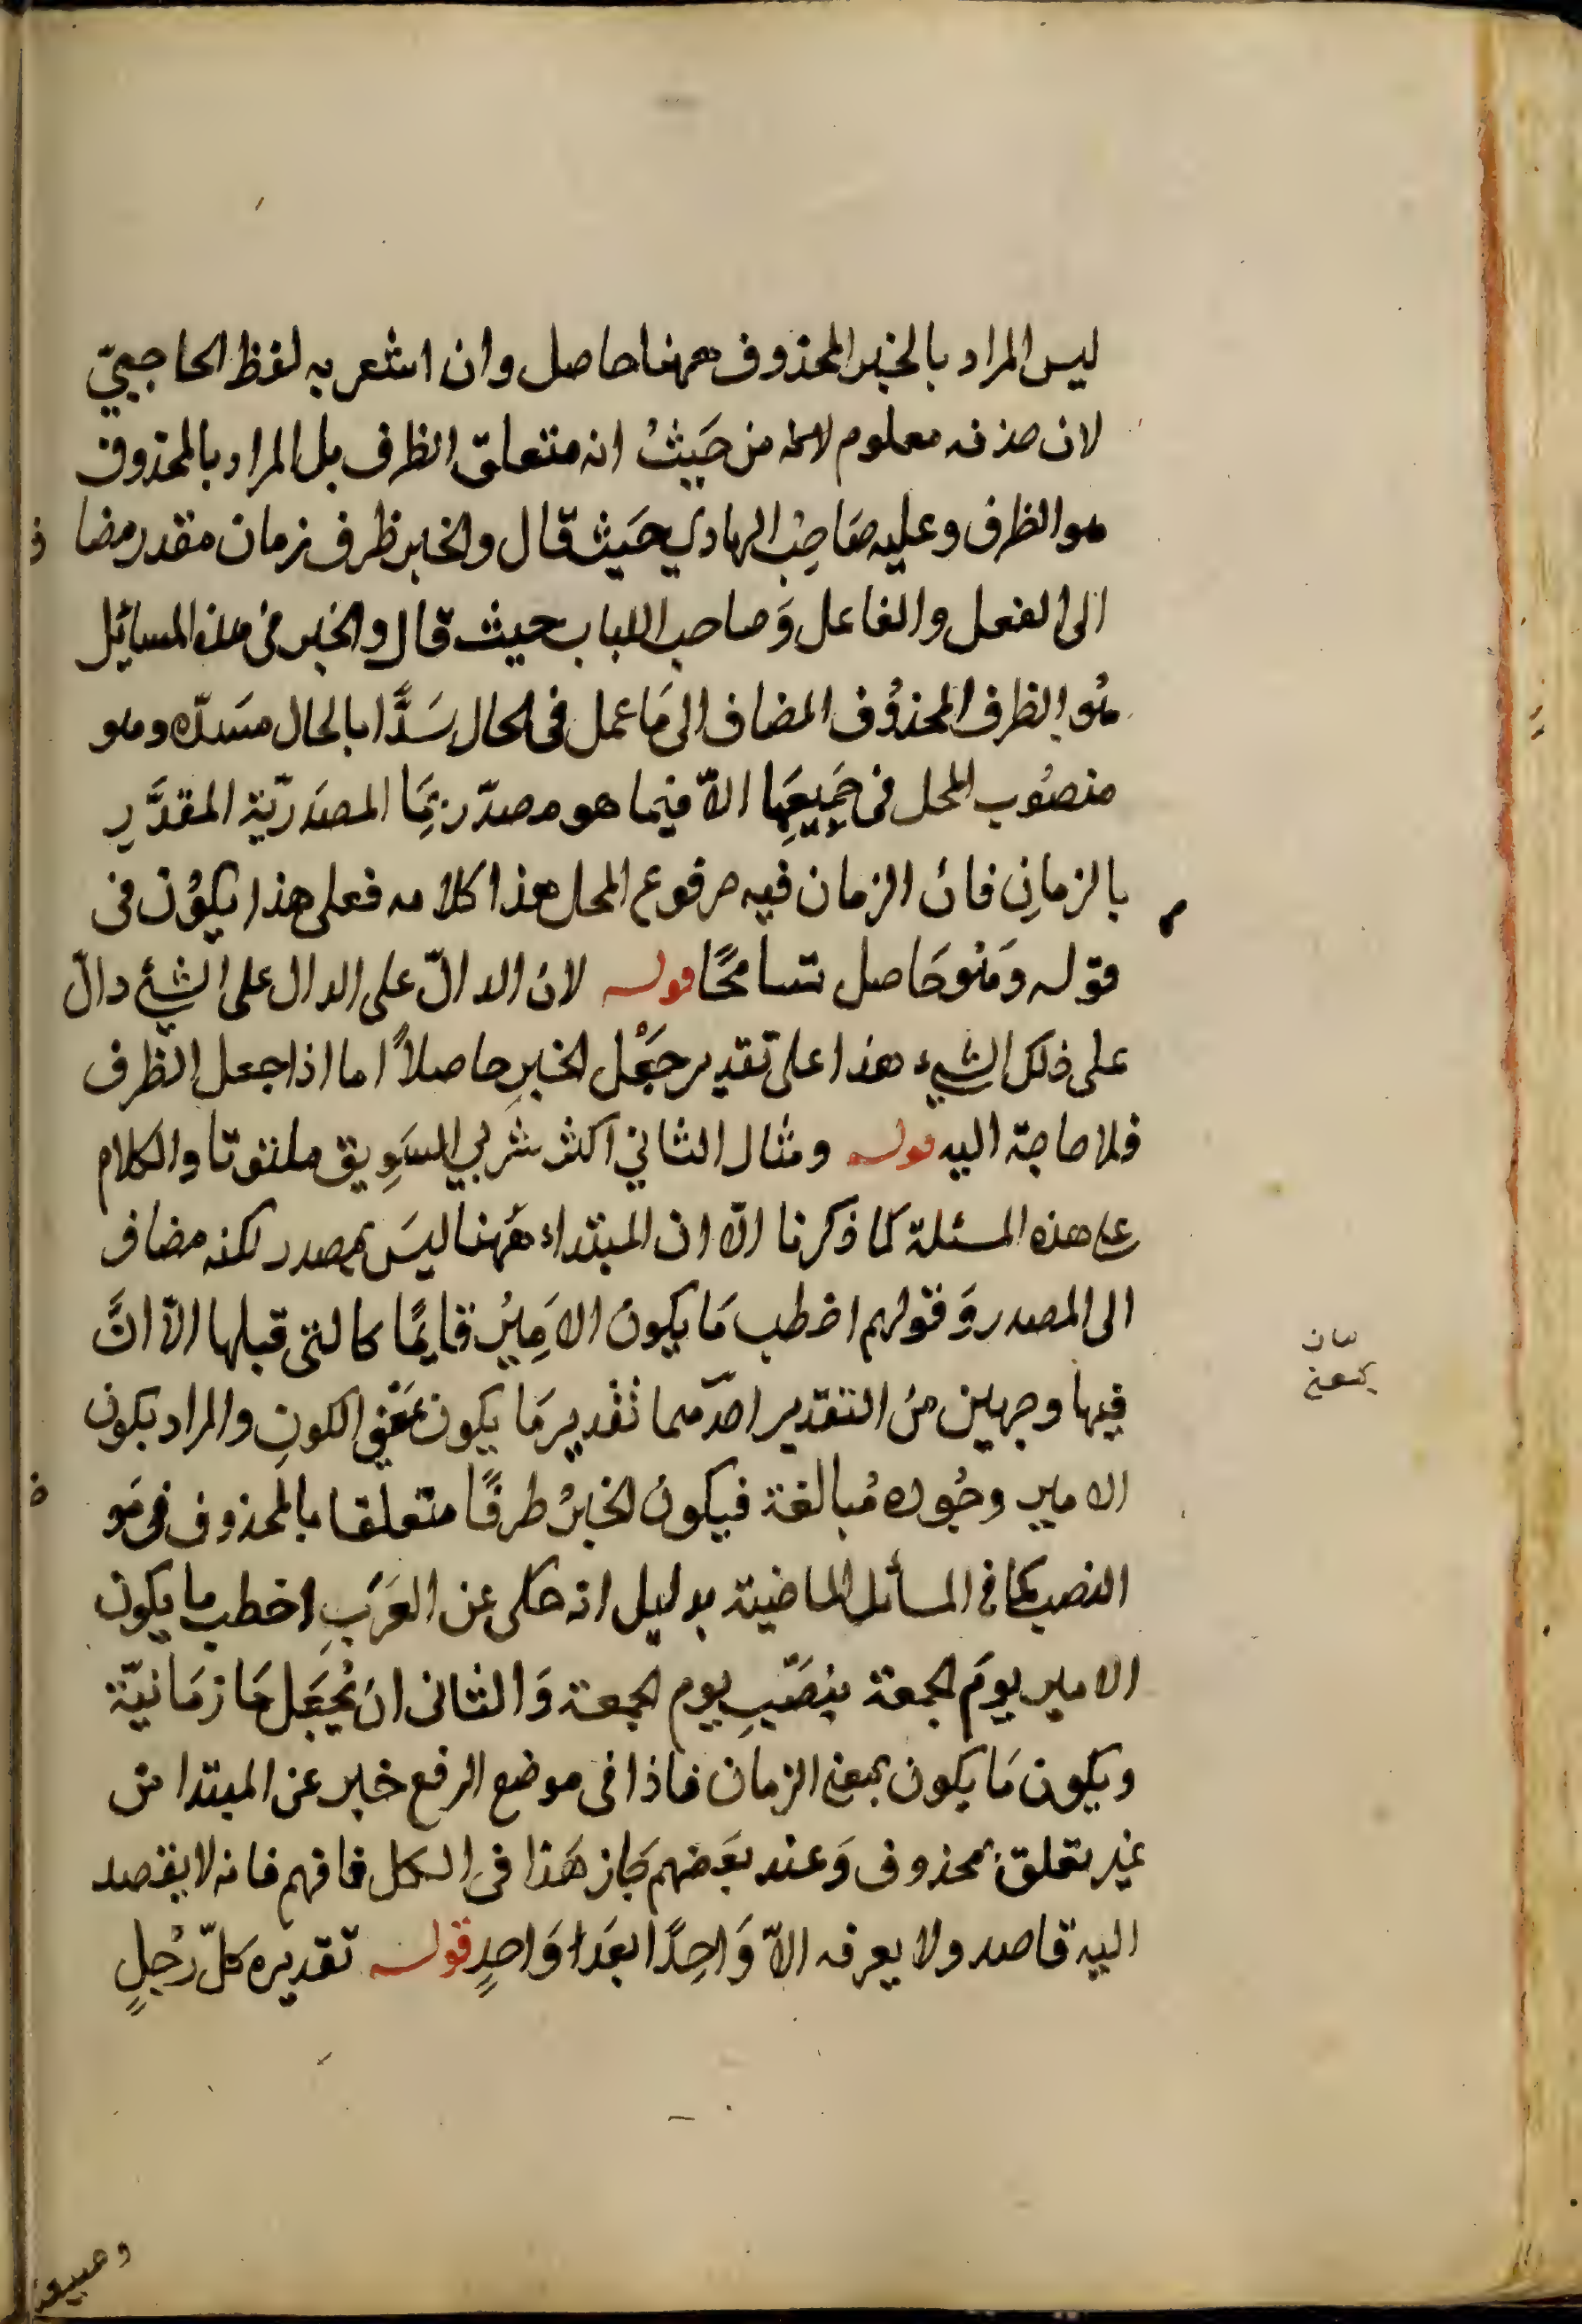 ليس المراد بالخبر المحذوف ههنا حاصل وان اشعر به لفظ الحاجبيّ
لان حذفه معلوم من حَيثُ انه متعلق الظرف بل المراد بالمحذوف
هو الظرف وعليه صَاحِبُ الهادي حَيث قال والخبر ظرف زمان مقدر مضاف
الى الفعل والفاعل وَصاحب اللباب حيث قال والخبر فى هذه المسائل
هُو الظرف المحذوُف المضاف الى مَا عمل فى الحال سَدًّا بالحال مسَدّه وهو
منصُوب المحل فى جَمِيعِهَا الاّ فيما هو مصدّر بمَا المصدَريّة المقدَّرِ
بالزمانِ فانَ الزمان فيه مرفوع المحل هذا كلامه فعلى هذا يكوُن فى
قوله وَهُو حَاصل تسامحًا قوله لانَ الدالّ على الدال على الشئ دالّ
على ذلك الشيء هذا على تقدير جَعْل الخبرِ حاصلاً اما اذا جعل الظرف
فلا حاجة اليه قوله ومثال الثاني اكثر شربي السَوِيق ملتوتا والكلام
على هذه المسئلة كما ذكرنا الّا ان المبتداء هَهنا ليسَ بمصدر لكنه مضاف
الى المصدر وَقولهم اخطب مَا يكونُ الامِيرُ قايمًا كالتى قبلها الاّ انَّ
فيها وجهين منَ التقدير احدَهما تقدير مَا يكون بمعَنى الكونِ والمراد بكون
الامير وجُوده مُبالغة فيكونُ الخبرُ ظرفًا متعلقا بالمحذوف فى موضع
النصب كما فى المسائل الماضية بدليل انه حكى عن العَرَبِ اخطب ما يكون
الامير يومَ الجمعة بنصَبِ يوم الجمعة وَالثانى انَ يُجعَل مَا زمَانيّة
ويكون مَا يكون بمعنى الزمان فاذا فى موضع الرفع خبر عن المبتدا من
غير تعلق بمحذوف وَعند بعَضهم جَاز هَذا فى الكل فافهم فانه لا يقصد
اليه قاصد ولا يعرفه الاّ وَاحِدًا بعَدَ وَاحدٍ قوله تقديره كلّ رَجُلٍ